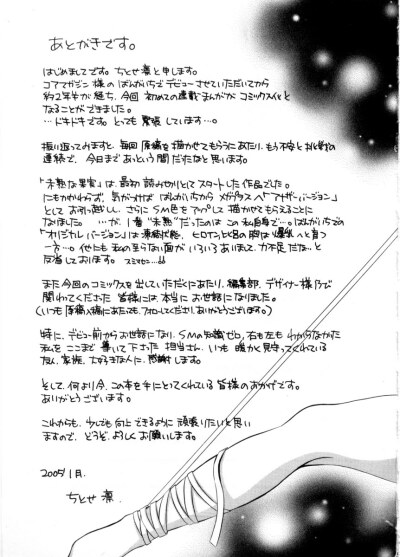 あとがきです。
はじめましてです。ちとせ凛と申します。
コアマガジン様のばんがいちでデビューさせていただいてから
約2年半が経ち、今回初めての連載まんががコミックス化と
なることができました。
…ドキドキです。とっても緊張しています…。
振り返ってみますと、毎回原稿を描かせてもらうにあたり、もう不安と
連続で、今日まであっという間だったなと思います。
「未熟な果実」は最初読み切りとしてスタートした作品でした。
にもかかわらず、気がつけばばんがいちからメガプラスへ「アナザーバージョン」
としてお引っ越しし、さらにSM色をアップして描かせてもらえることに
なりました。…が、1番"未熟"だったのはこの私自身で…。ばんがいちでの
「オリジナルバージョン」は凍結状態、ヒロイン比呂の胸は爆乳へと育つ
一方…。くせにも私の至らない面がいろいろありまして、力不足だな…と
反省しております。スミマセン…
また今回のコミックスを出していただくにあたり、編集部、デザイナー様などで
関わってくださった皆様には本当にお世話になりました。
(いつも原稿入稿にあたっても、フォローしてくださり、ありがとうございます。)
特に、デビュー前からお世話になり、SMの知識ゼロ、右も左もわからなかった
私をここまで導いて下さった担当さん、いつも暖かく見守ってくれている
友人、家族、大好きな人に、感謝します。
そして、何より今、この本を手にとってくれている皆様のおかげです。
ありがとうございます。
これからも、少しでも向上できるように頑張りたいと思い
ますので、どうぞ、よろしくお願いします。
2005 1月.
ちとせ 凛